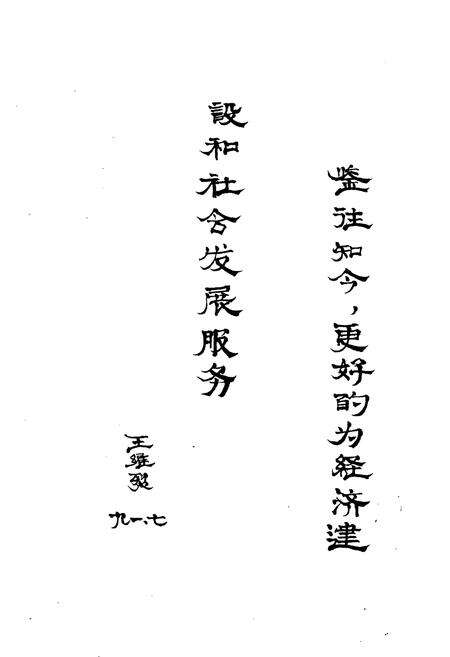 鉴往知今，更好的为经济建
設和社会发展服务
王維
九一.七